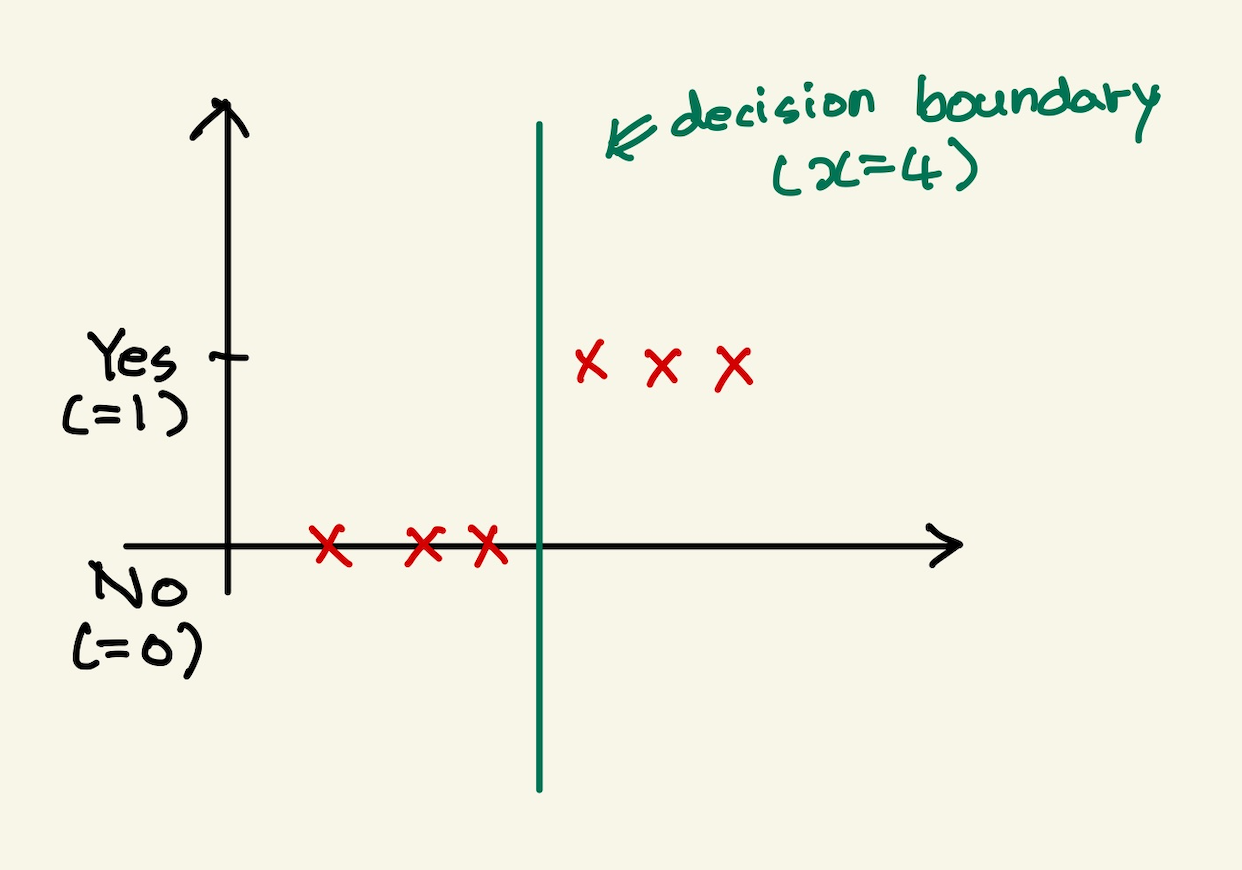 decision boundary
(x=4)
Yes
(=1)
No
(=0)